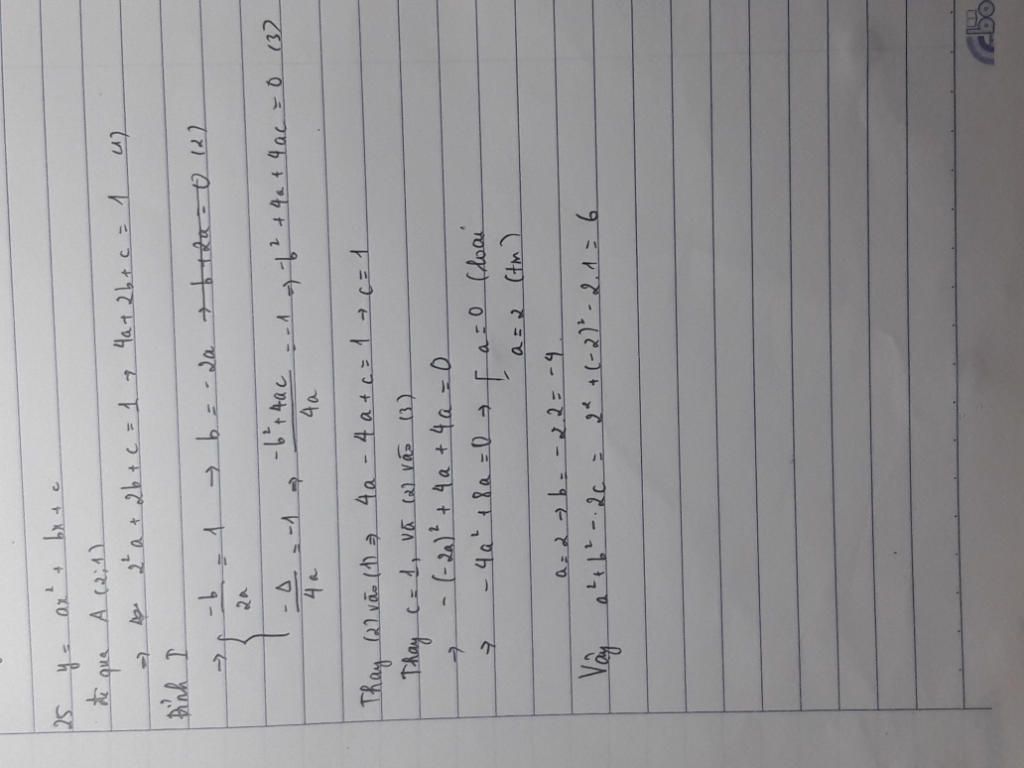 25 y = ax² + bx + c
đi qua A (2,1)
=> 2²a + 2b + c = 1 → 4a + 2b + c = 1 (1)
Đỉnh I
→ { -b/2a = 1 → b = -2a → b + 2a = 0 (2)
-Δ/4a = -1 => -b² + 4ac/4a = -1 => -b² + 4a + 4ac = 0 (3)
Thay (2) vào (1) => 4a - 4a + c = 1 → c = 1
Thay c = 1, và (2) vào (3)
→ -(-2a)² + 4a + 4a = 0
→ -4a² + 8a = 0 → [ a = 0 (loại
a = 2 (tm)
a = 2 → b = -2.2 = -4
Vậy a² + b² - 2c = 2² + (-2)² - 2.1 = 6